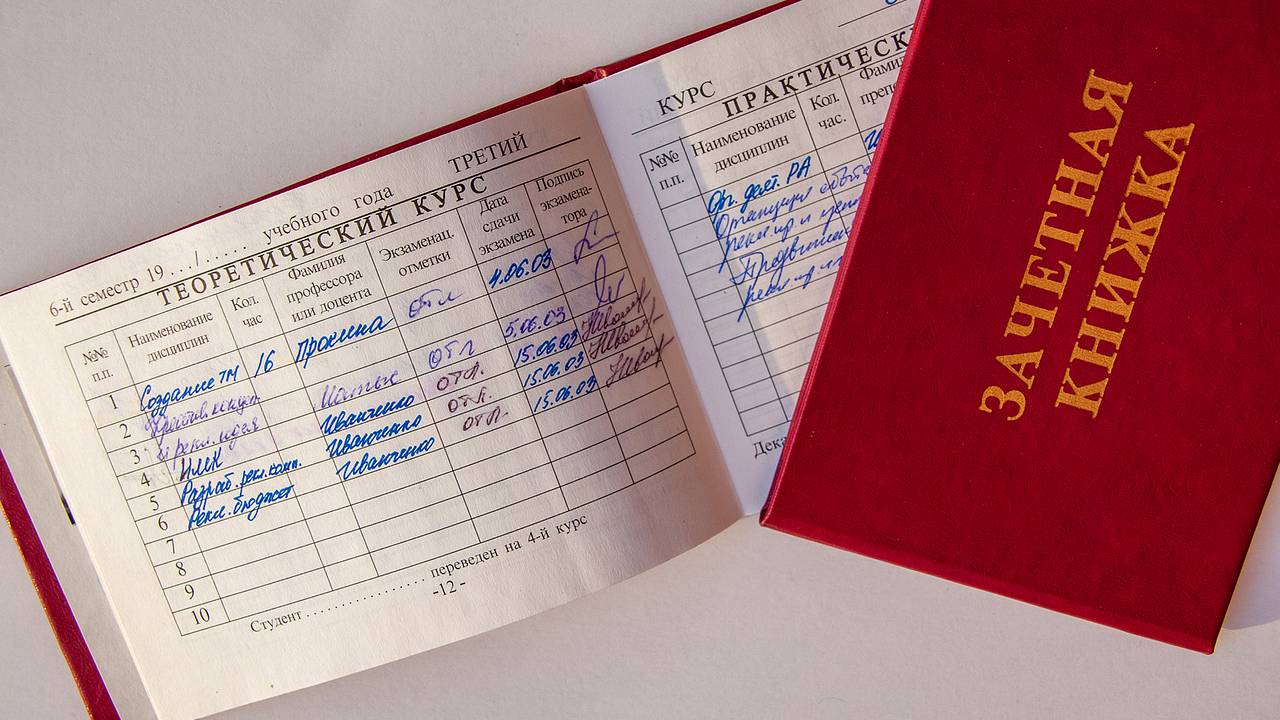 6-й семестр 19 .../...... учебного года ТРЕТИЙ
ТЕОРЕТИЧЕСКИЙ КУРС
№№ п.п. Наименование дисциплин Кол. час Фамилия профессора или доцента Экзаменац. отметки Дата сдачи экзамена Подпись экзамена- тора
1 Создание ТМ 16 Пронина отл 4.06.03
2
3 и рекл. идея отл 5.06.03
4 ИМК Иванченко отл. 15.06.03
5 Разраб. рекл. комп. Иванченко отл. 15.06.03
6 Рекл. бюджет Иванченко отл. 15.06.03
7
8
9
10
Студент .................... переведен на 4-й курс
-12-
КУРС
ПРАКТИЧЕСК
№№ п.п. Наименование дисциплин Кол. час. Фами препо
Ор. деят. РА
Дека
ЗАЧЕТНАЯ
КНИЖКА